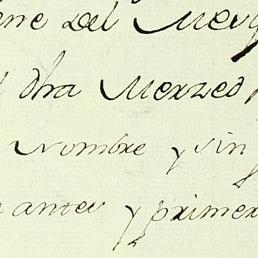 del
dha Merzed
Nombre y sin
antes y primer